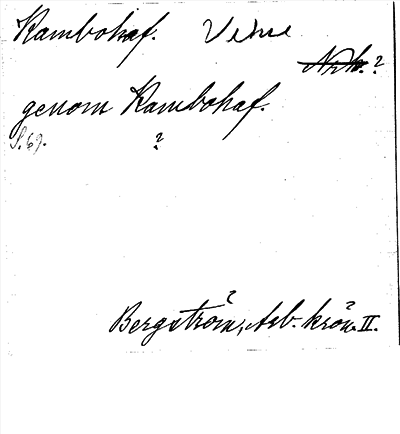 Kambohaf. Vehse
Nrk. ?
genom Kambohaf.
S. 69. ?
Bergström, Arb. krön. II.